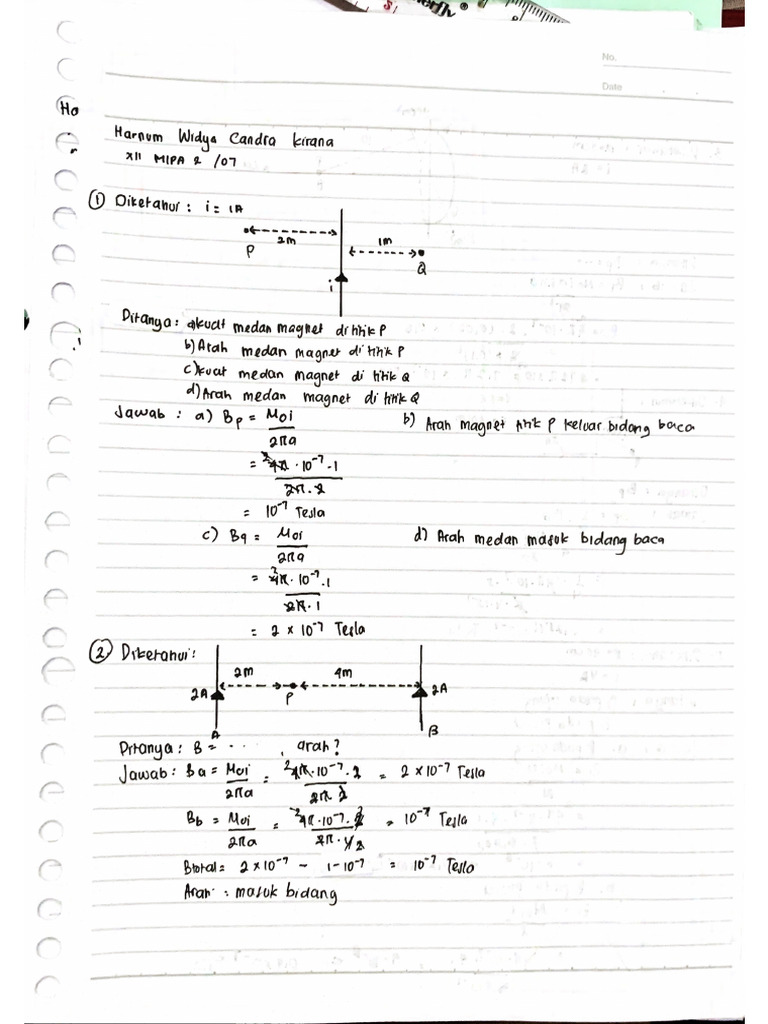 No.
Date
Ha
Harnum Widya Candra Kirana
XII MIPA 2 /07
① Diketahui : i = 1A
2m
1m
P
Q
i
Ditanya : a) kuat medan magnet di titik P
b) Arah medan magnet di titik P
c) kuat medan magnet di titik Q
d) Arah medan magnet di titik Q
Jawab : a) Bp = Moi / 2πa
b) Arah magnet titik P keluar bidang baca
= 4π · 10⁻⁷ · 1 / 2π · 2
= 10⁻⁷ Tesla
c) Bq = Moi / 2πa
d) Arah medan masuk bidang baca
= 4π · 10⁻⁷ · 1 / 2π · 1
= 2 × 10⁻⁷ Tesla
② Diketahui :
2m
4m
2A
P
2A
A
B
Ditanya : B = ...... , arah?
Jawab : Ba = Moi / 2πa = 4π · 10⁻⁷ · 2 / 2π 2 = 2 × 10⁻⁷ Tesla
Bb = Moi / 2πa = 4π · 10⁻⁷ · 2 / 2π · 4 2 = 10⁻⁷ Tesla
Btotal = 2 × 10⁻⁷ - 1 - 10⁻⁷ = 10⁻⁷ Tesla
Arah : masuk bidang